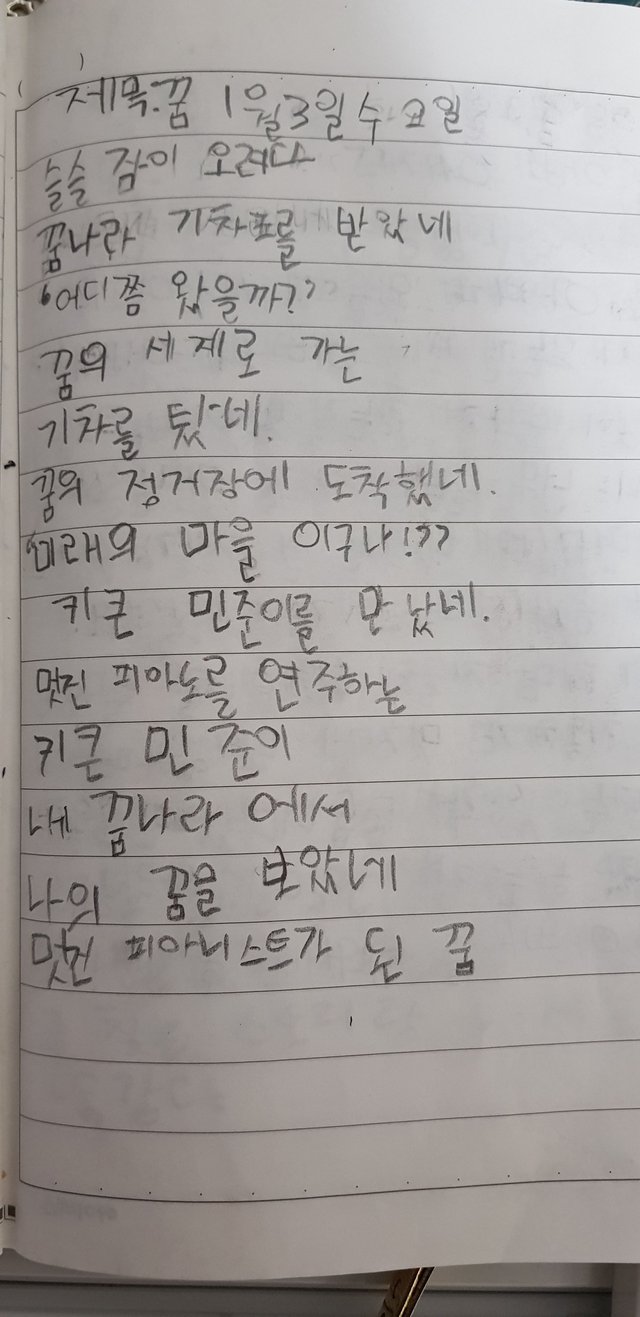 제목:꿈 1월3일수요일
슬슬 잠이 오려다
꿈나라 기차표를 받았네
'어디쯤 왔을까?'
꿈의 세계로 가는
기차를 탔네.
꿈의 정거장에 도착했네.
"미래의 마을 이구나!"
키큰 민준이를 만났네.
멋진 피아노를 연주하는
키큰 민준이
내 꿈나라에서
나의 꿈을 보았네
멋진 피아니스트가 된 꿈